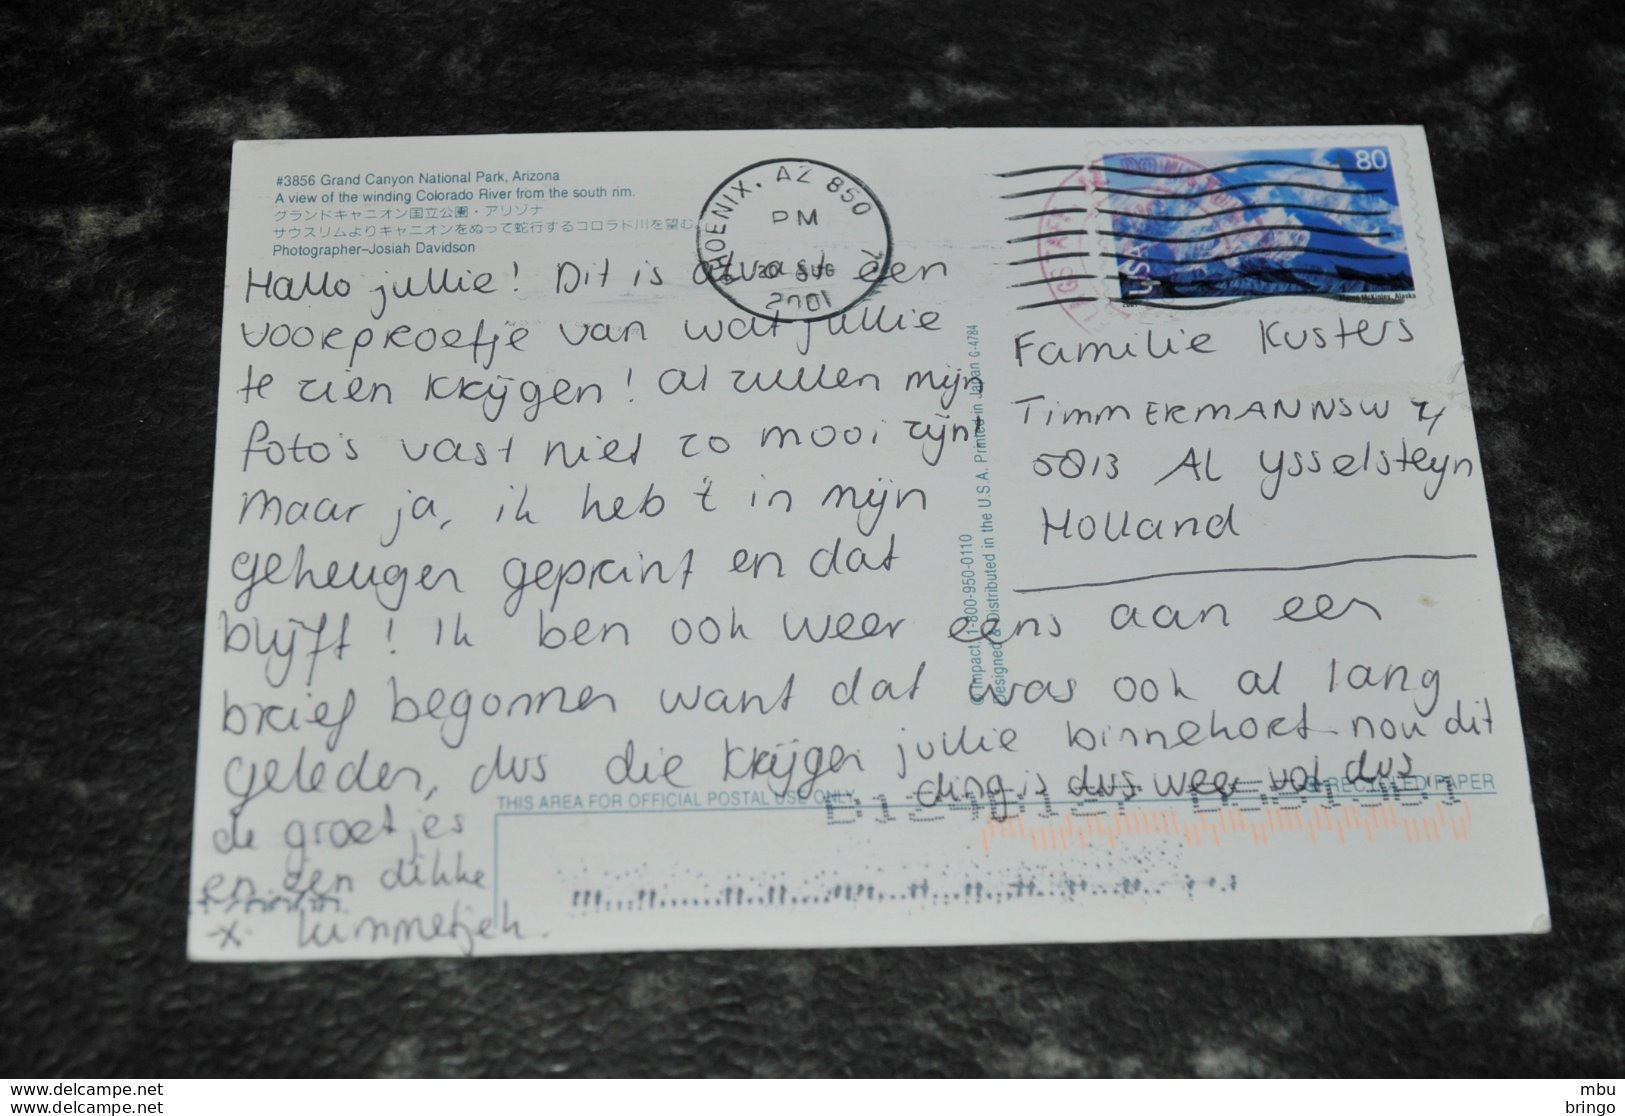 #3856 Grand Canyon National Park, Arizona
A view of the winding Colorado River from the south rim.
グランドキャニオン国立公園・アリゾナ
サウスリムよりキャニオンをぬって蛇行するコロラド川を望む。
Photographer–Josiah Davidson
PHOENIX, AZ 850
PM
20 AUG
2001
80
USA
2001
Mount McKinley, Alaska
Hallo jullie! Dit is alvast een
voorproefje van wat jullie
te zien krijgen! Al zullen mijn
foto's vast niet zo mooi zijn,
maar ja, ik heb 't in mijn
geheugen geprint en dat
blijft! Ik ben ook weer eens aan een
brief begonnen want dat was ook al lang
geleden, dus die krijgen jullie binnenkort nou dit
ding is dus weer vol dus
de groetjes
en een dikke
x
Familie Kusters
TIMMERMANNSW
5813 AL Ysselsteyn
Holland
© Impact 1-800-950-0110
Designed & Distributed in the U.S.A. Printed in Japan G-4784
THIS AREA FOR OFFICIAL POSTAL USE ONLY
RECYCLED PAPER
delcampe.net
delcampe.net
mbu
bringo